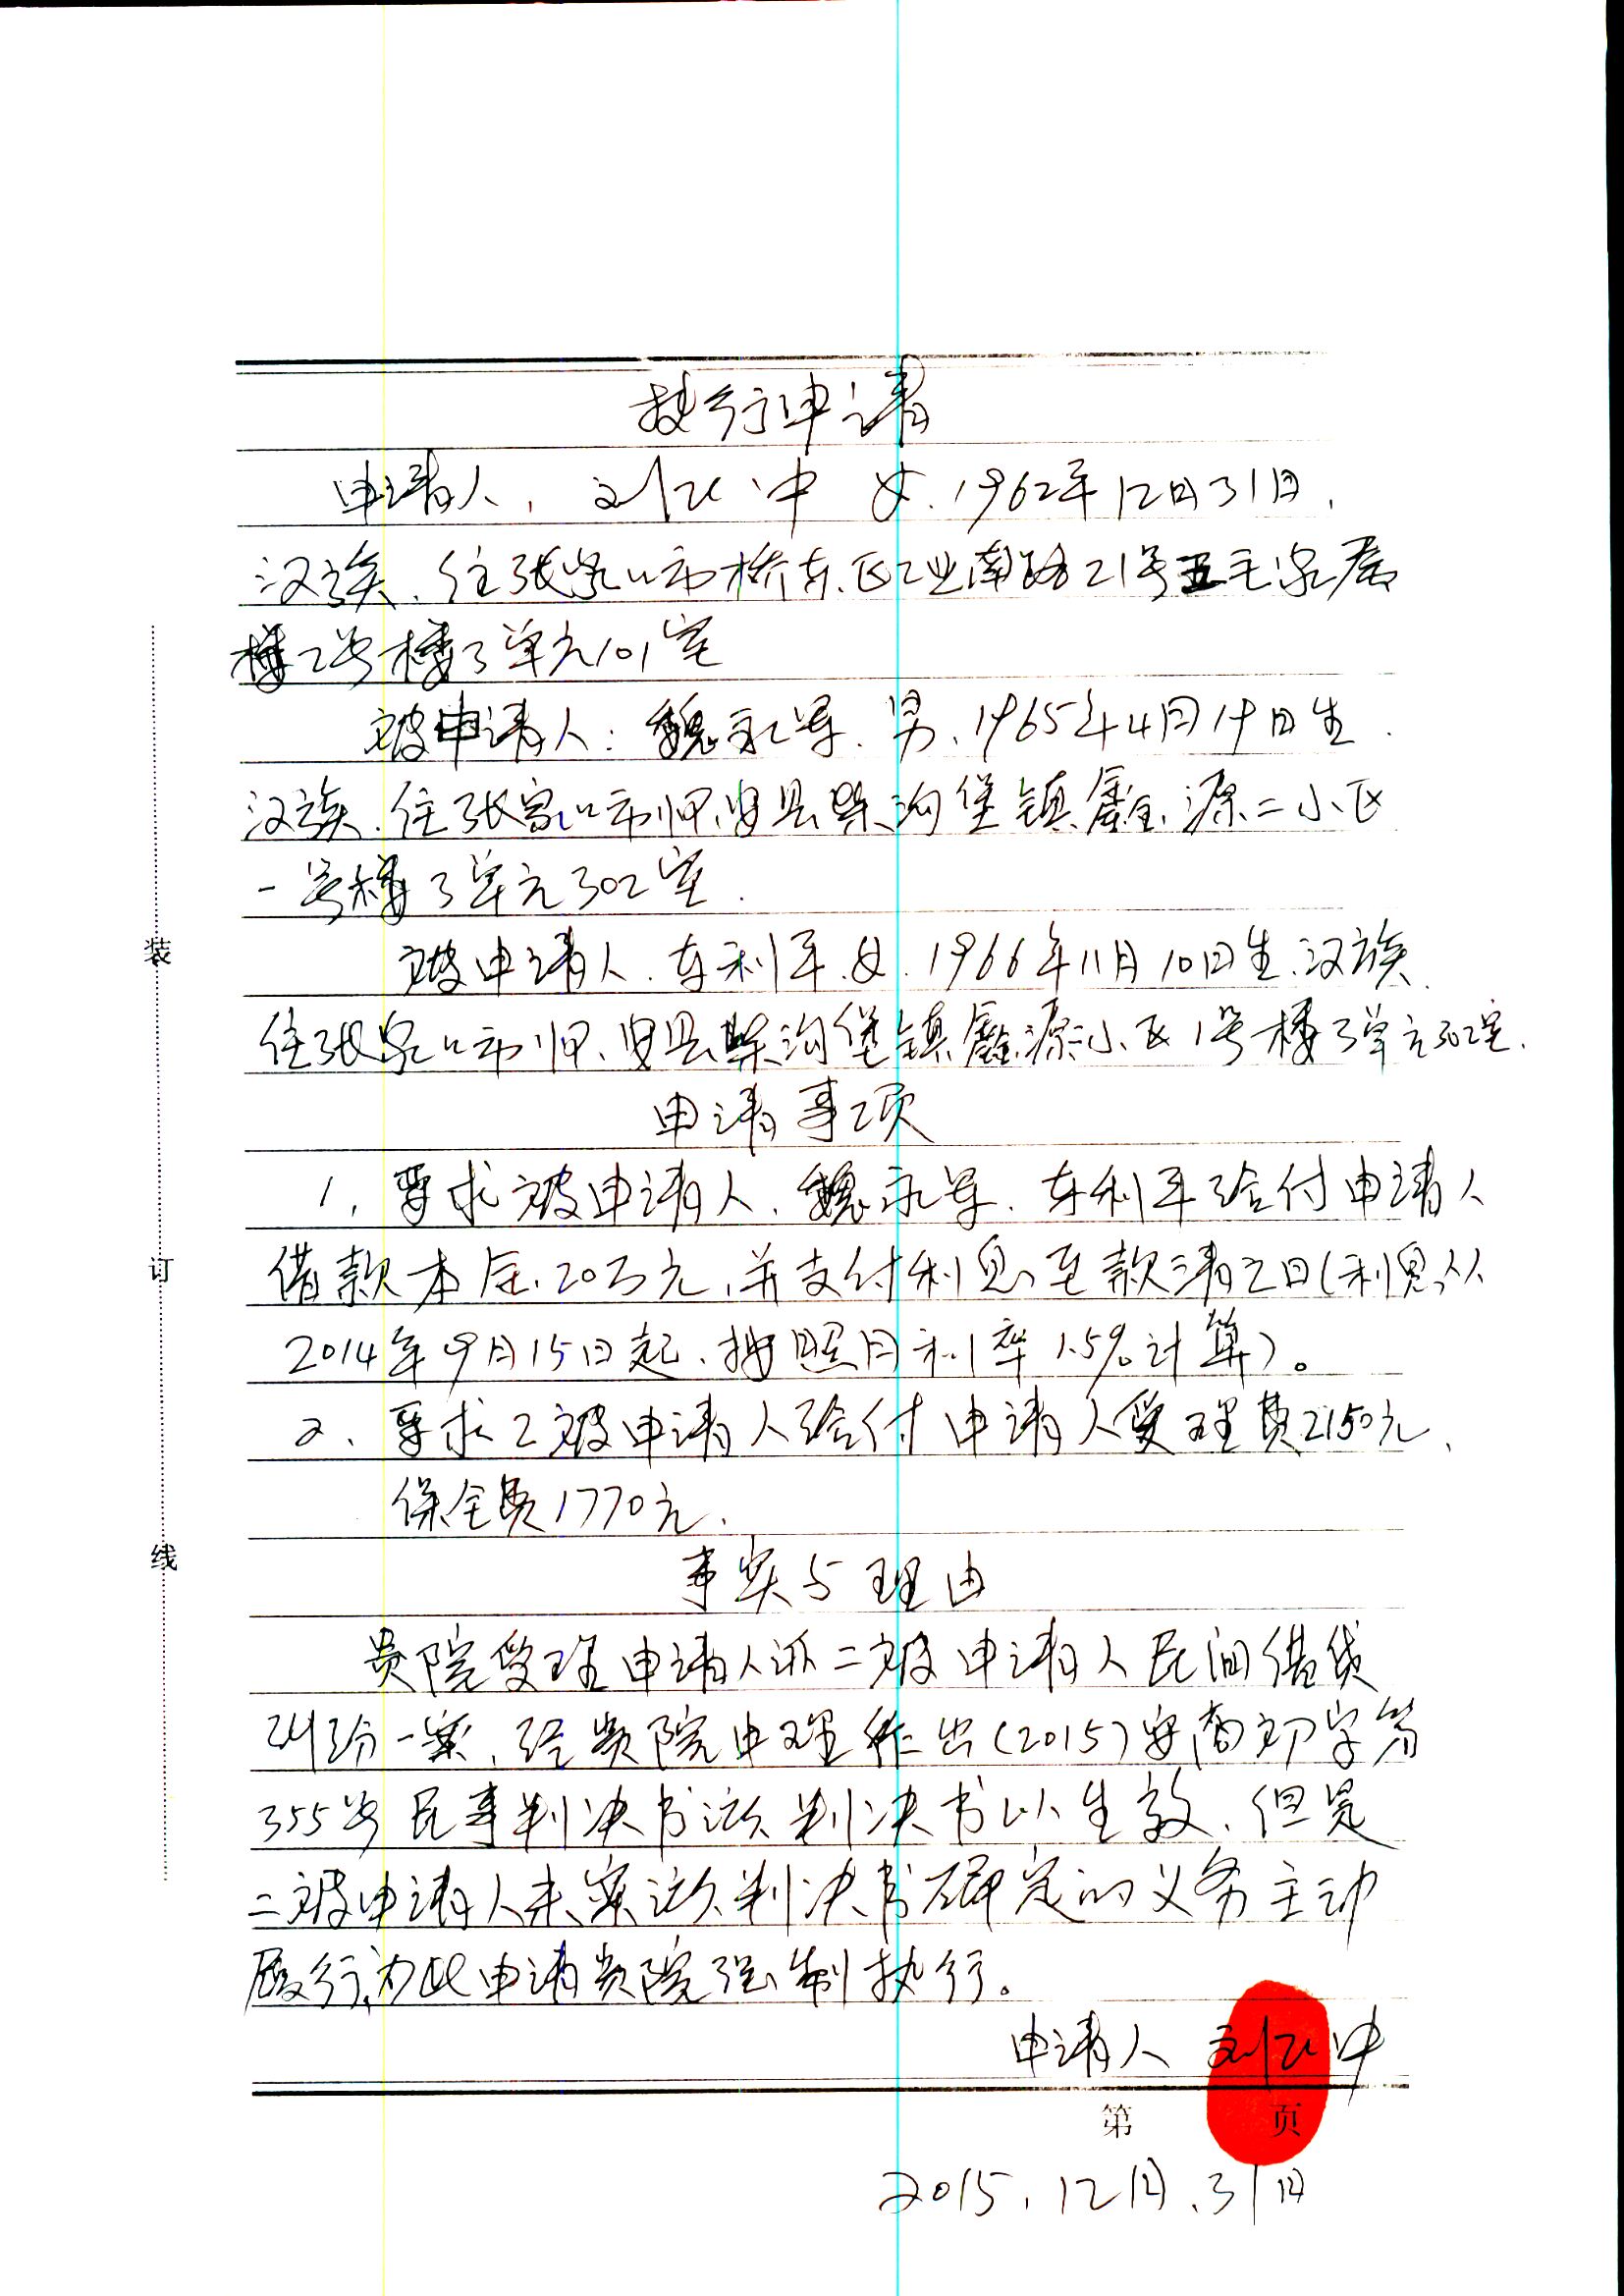 执行申请
申请人，刘 中 女．1962年12月31日，
汉族．住张家口市桥东区工业南路21号五毛家属
楼2号楼3单元101室
被申请人：魏永军．男、1965年4月19日生．
汉族．住张家口市怀安县柴沟堡镇鑫源二小区
一号楼3单元302室．
被申请人．东利平．女．1966年11月10日生．汉族
住张家口市怀安县柴沟堡镇鑫源二小区1号楼3单元302室．
申请事项
1．要求被申请人．魏永军．东利平给付申请人
借款本金20万元，并支付利息至款清之日（利息从
2014年9月15日起、按照月利率1.5%计算）。
2、要求2被申请人给付申请人受理费2150元、
保全费1770元．
事实与理由
贵院受理申请人诉二被申请人民间借贷
纠纷一案，经贵院审理作出（2015）安商初字第
355号民事判决书该判决书以生效．但是
二被申请人未案该判决书确定的义务主动
履行，为此申请贵院强制执行。
申请人 刘 中
第 页
2015．12月．31日
装
订
线